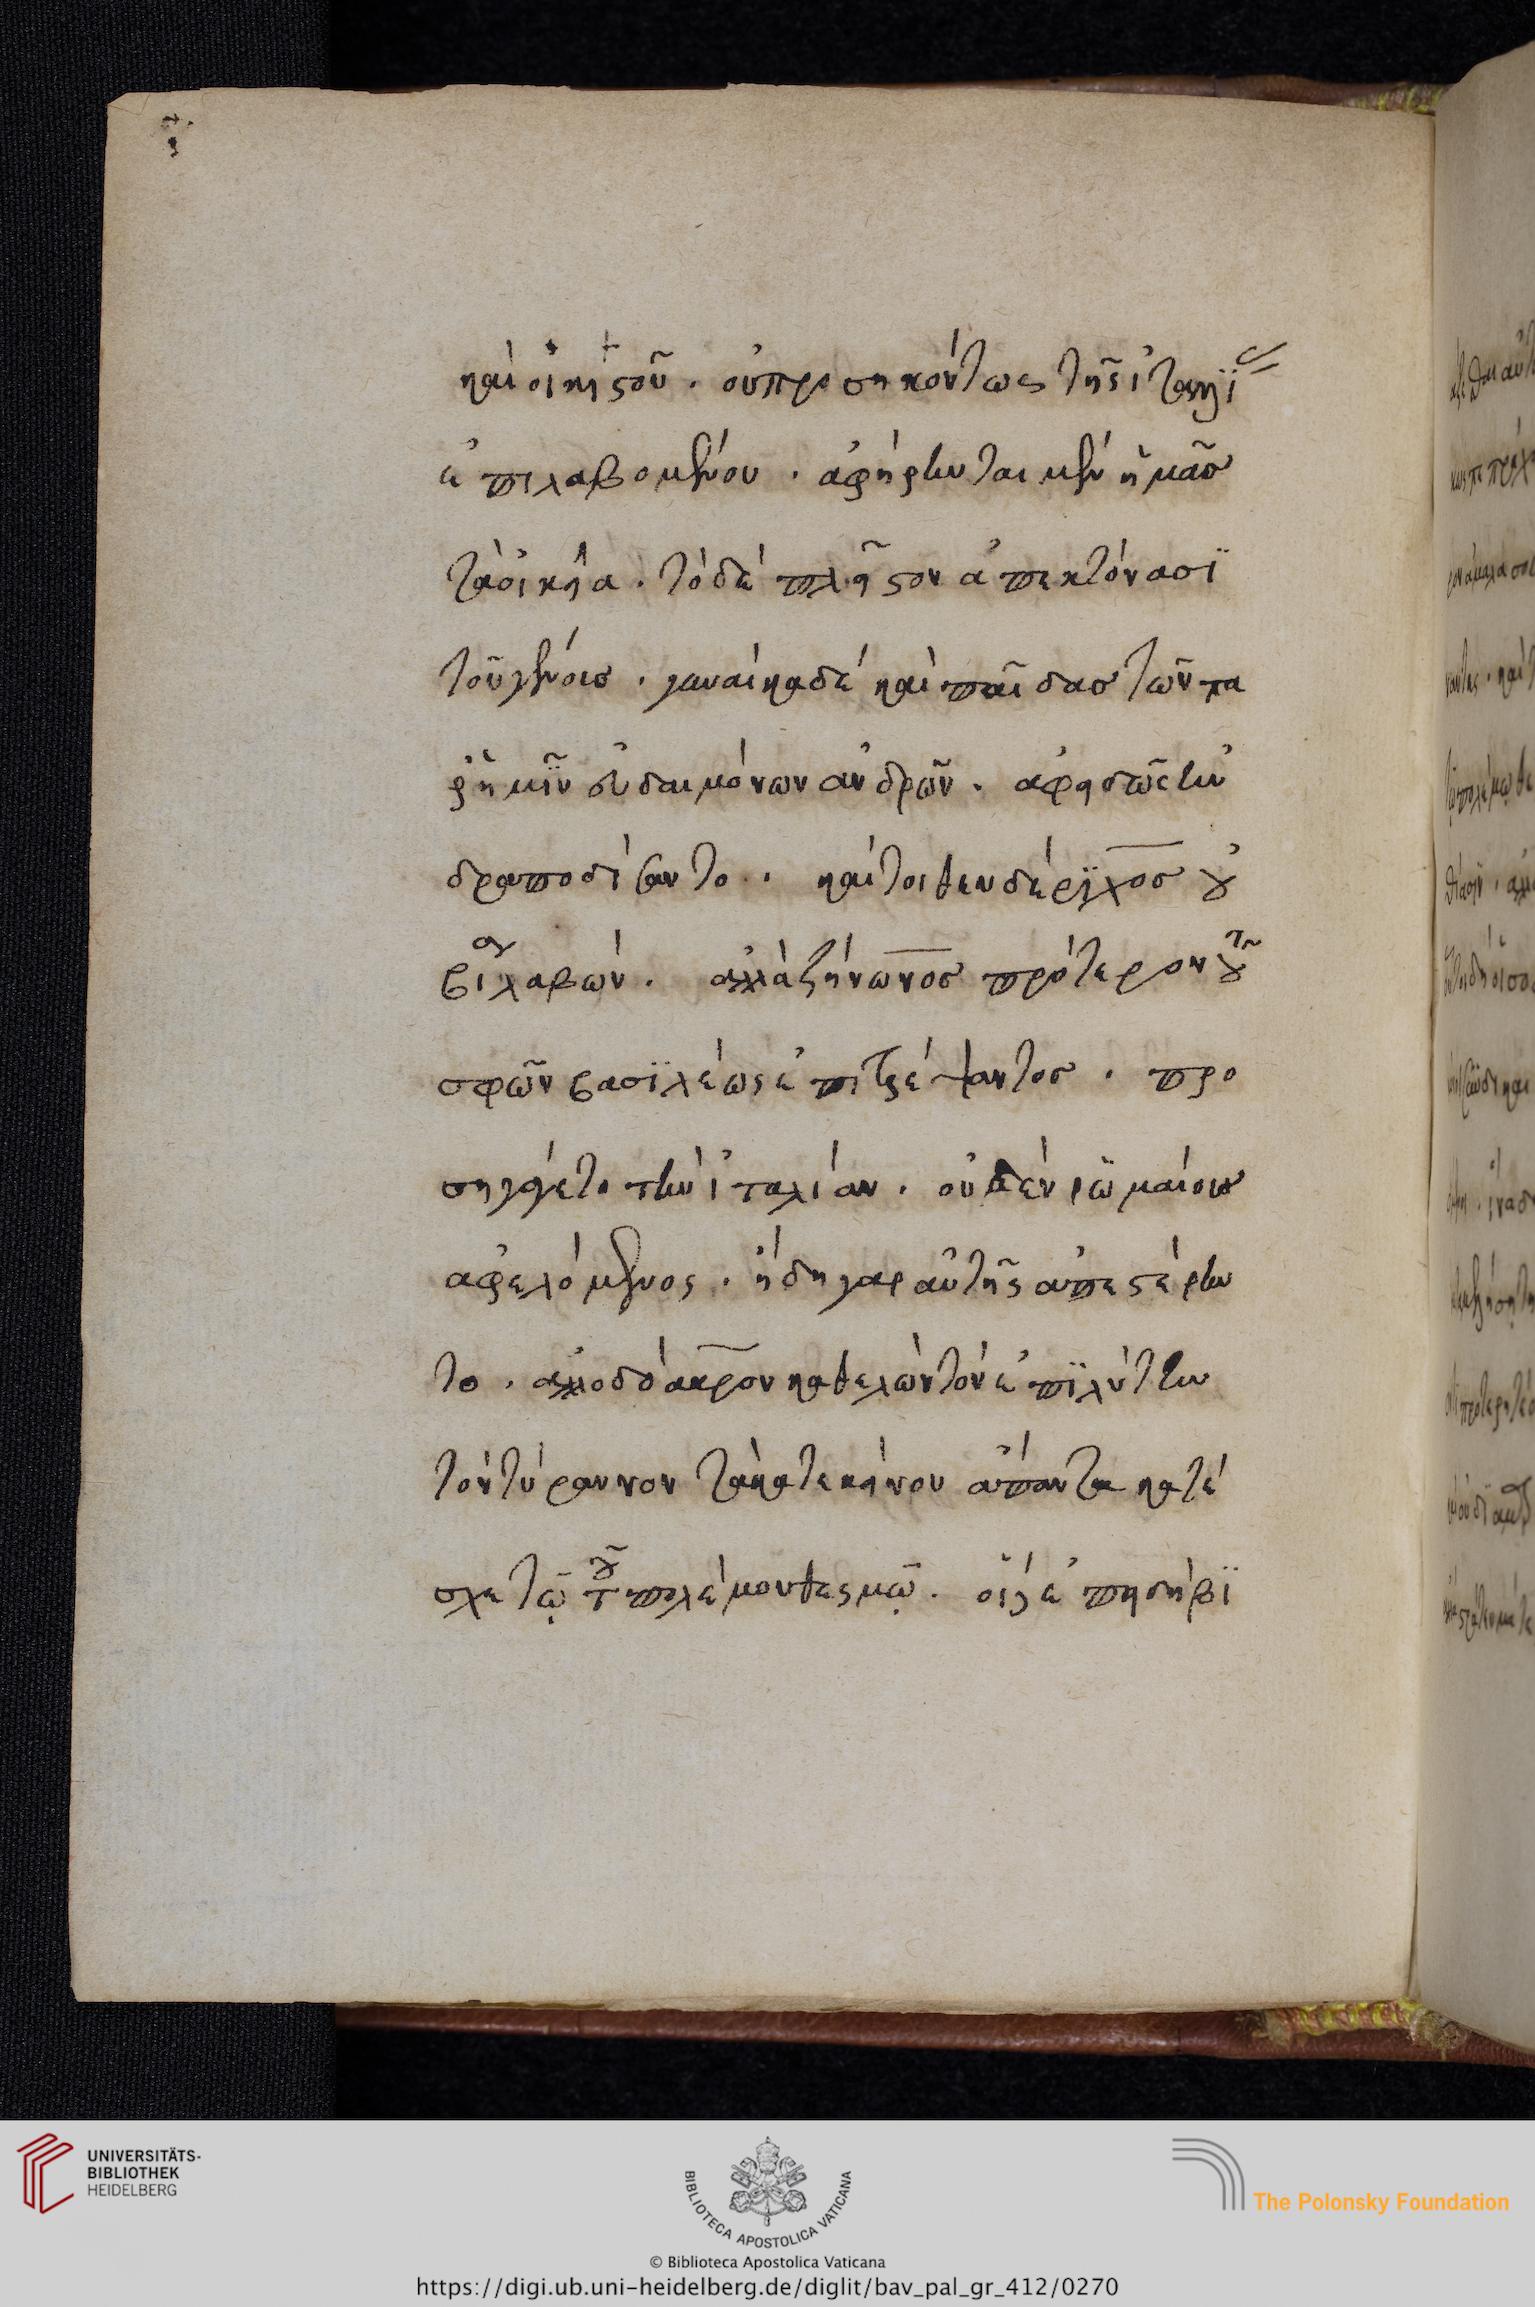 καὶ οἰκίστου. οὐ προσηκόντως τῆς ἰταλί
ἐπιλαβομένου. ἀφήρηνται μὲν ἡμᾶσ
τὰ οἰκεῖα. τὸ δὲ πλεῖστον ἀπεκτόνασϊ
τοῦ γένουσ. γυναίκα δὲ καὶ παῖδασ τῶν πα
ρ' ἡμῖν εὐδαιμόνων ἀνδρῶν. ἀφειδῶς ἠν
δραποδίσαντο. καίτοι θευδέριχοσ οὐ
βίαν λαβών. ἀλλὰ ζήνωνοσ πρότερον τοῦ
σφῶν βασϊλέως ἐπιτρέψαντοσ. προ
σηγάγετο τὴν ἰταλίαν. οὐδὲν ῥωμαίουσ
ἀφελόμενος. ἤδη γαρ αὐτῆς ἀπεστέρην
το. ἀλλ' ὀδόακρον καθελὼν τὸν ἐπϊλύτην
τὸν τύραννον τὰ κατεκείνου ἅπαντα κατέ
σχε τῷ τοῦ πολέμου θεσμῷ. οἷς ἐπειδήβϊ
UNIVERSITÄTS-
BIBLIOTHEK
HEIDELBERG
BIBLIOTECA APOSTOLICA VATICANA
The Polonsky Foundation
© Biblioteca Apostolica Vaticana
https://digi.ub.uni-heidelberg.de/diglit/bav_pal_gr_412/0270